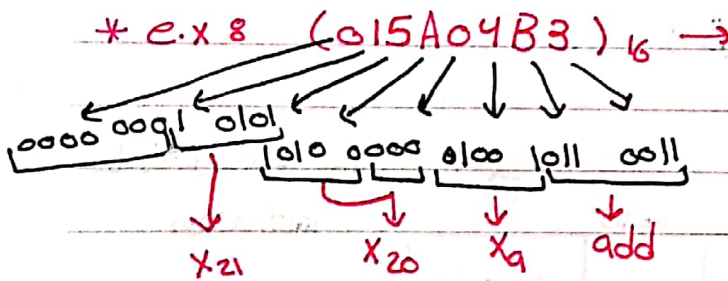 * e.x 8 (015A04B3)16 →
0000 0001 0101 1010 0000 0100 1011 0011
x21 x20 x9 add